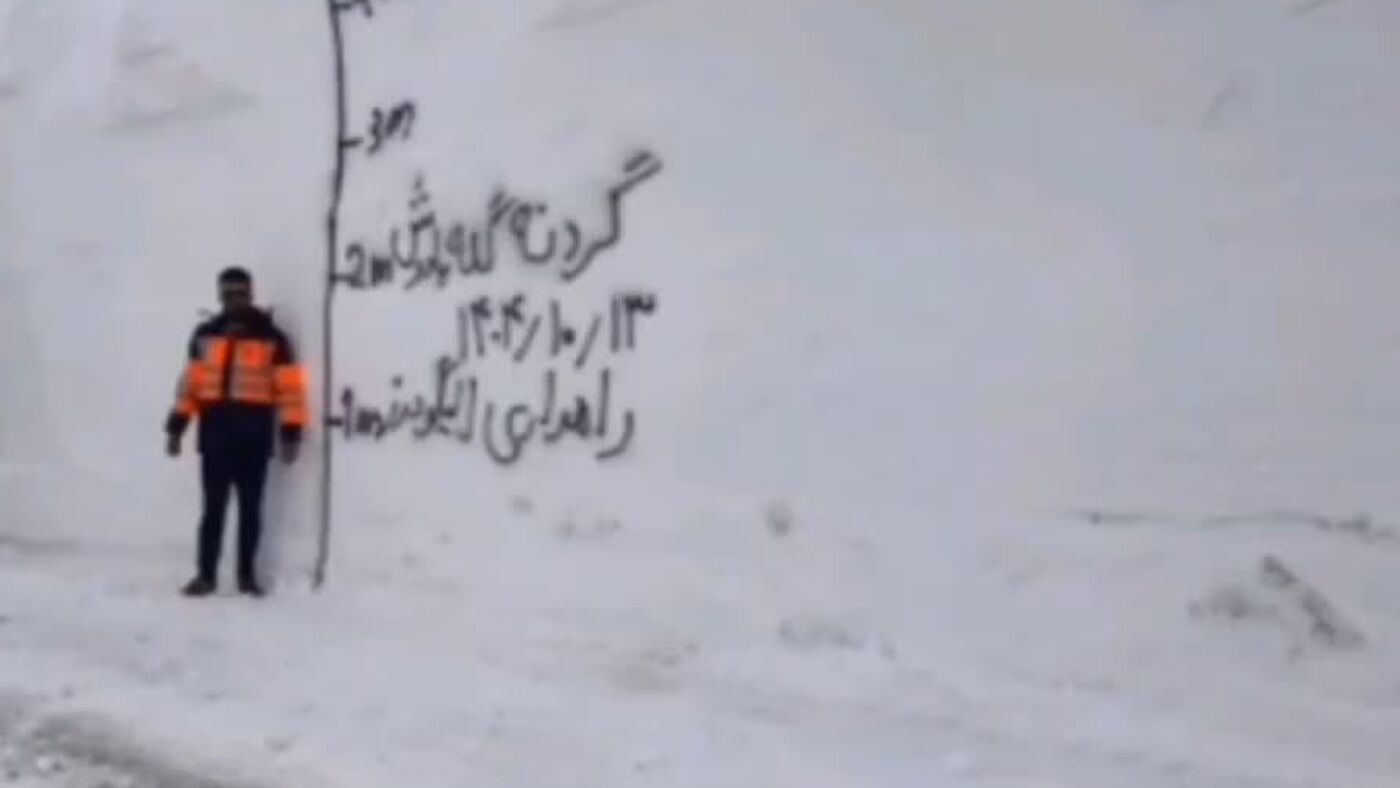 3m
گردنه گله بادوش
2m
۱۴۰۴/۱۰/۱۳
راهداری الیگودرز
1m